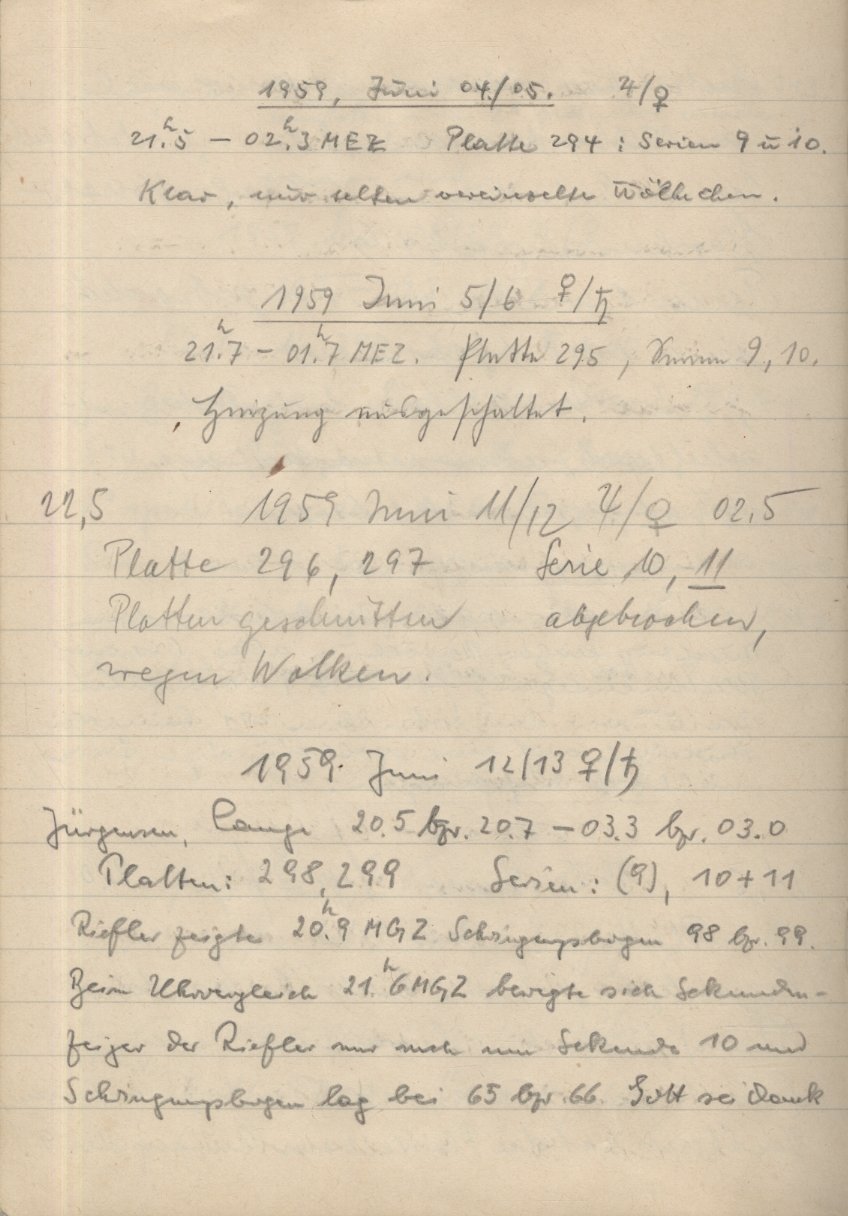 1959, Juni 04./05. ♃/♀
21.ʰ5 – 02.ʰ3 MEZ Platte 294 : Serien 9 u 10.
Klar, nur selten vereinzelte Wölkchen.
1959 Juni 5/6 ♀/♄
21.ʰ7 – 01.ʰ7 MEZ. Platte 295, Serien 9, 10.
Heizung ausgeschaltet.
22,5 1959 Juni 11/12 ♃/♀ 02.5
Platte 296, 297 Serie 10, 11
Platten geschnitten abgebrochen,
wegen Wolken.
1959. Juni 12/13 ♀/♄
Jürgensen, Lange 20.5 bzw. 20.7 – 03.3 bzw. 03.0
Platten: 298, 299 Serien: (9), 10 + 11
Riefler zeigte 20.ʰ9 MGZ Schwingungsbogen 98 bzw. 99.
Beim Uhrvergleich 21.ʰ6 MGZ bewegte sich Sekunden-
zeiger der Riefler nur noch um Sekunde 10 und
Schwingungsbogen lag bei 65 bzw. 66. Gott sei Dank